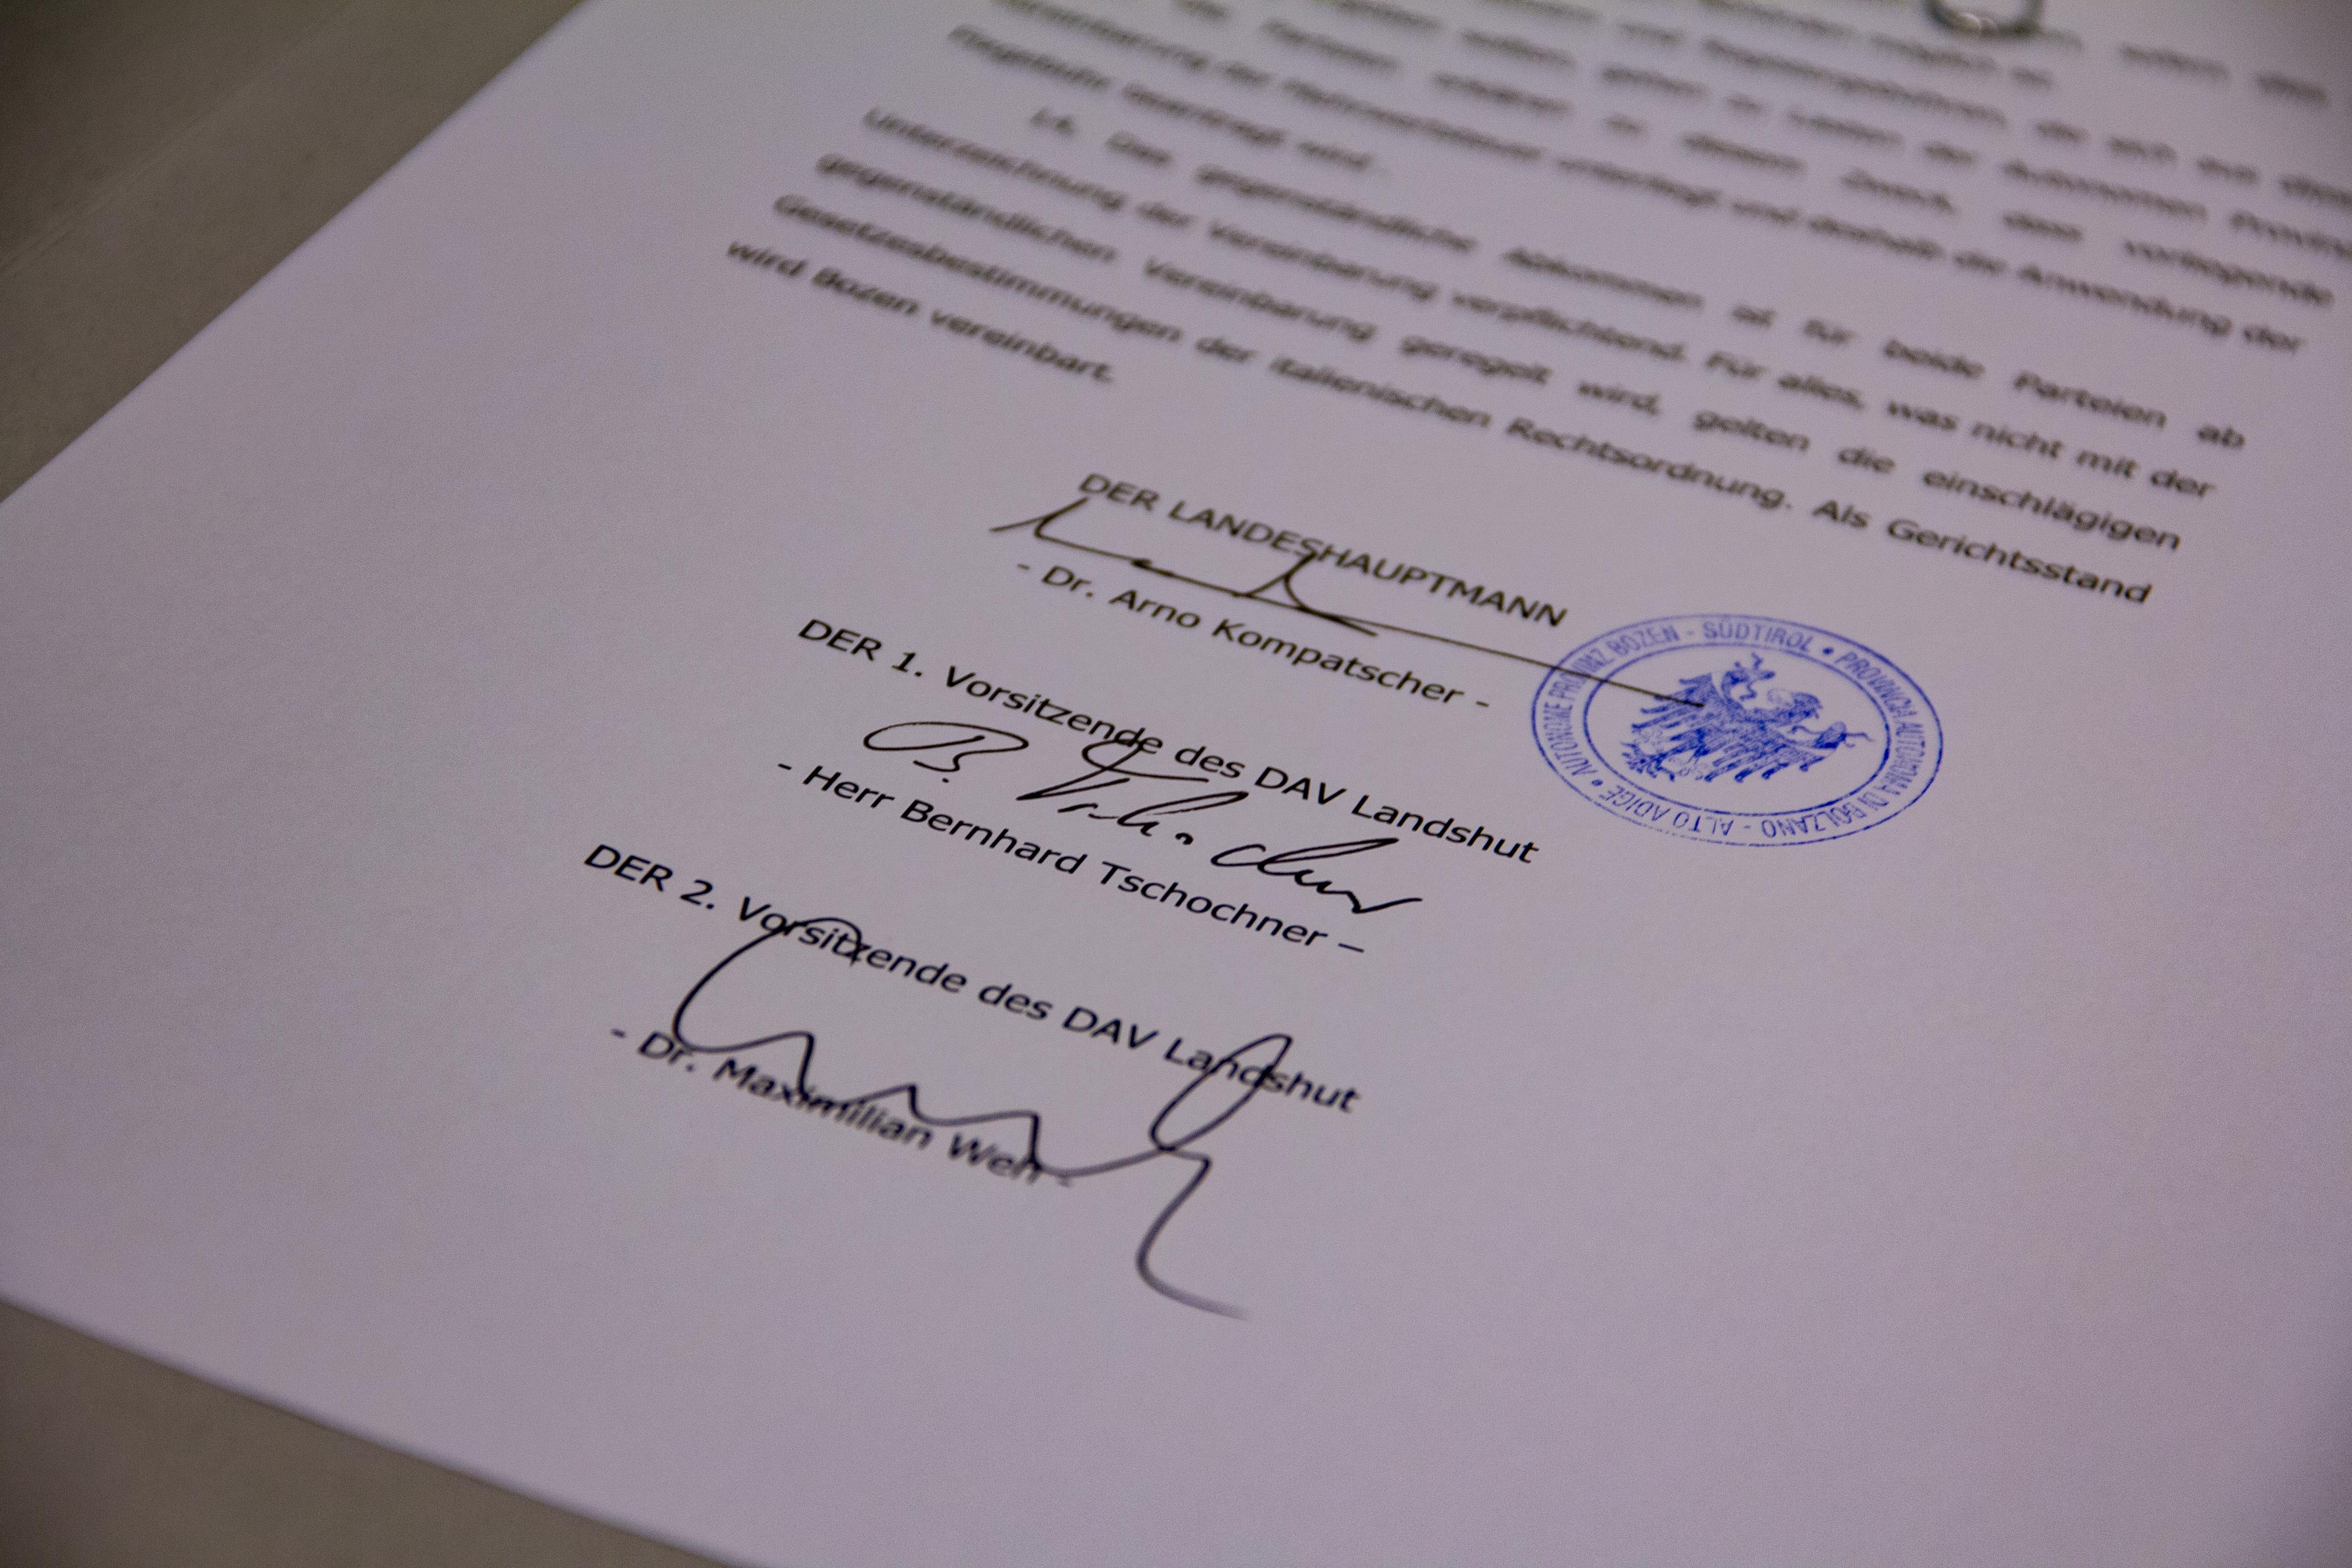 und
sich aus
Autonomen Provinz
Parteien erklären zu diesem Zweck, dass vorliegende
Vereinbarung der unterliegt und deshalb die Anwendung der
wird.
14. Das gegenständliche Abkommen ist für beide Parteien ab
Unterzeichnung der Vereinbarung verpflichtend. Für alles, was nicht mit der
gegenständlichen Vereinbarung geregelt wird, gelten die einschlägigen
Gesetzesbestimmungen der italienischen Rechtsordnung. Als Gerichtsstand
wird Bozen vereinbart.
DER LANDESHAUPTMANN
- Dr. Arno Kompatscher -
AUTONOME PROVINZ BOZEN - SÜDTIROL • PROVINCIA AUTONOMA DI BOLZANO - ALTO ADIGE •
DER 1. Vorsitzende des DAV Landshut
- Herr Bernhard Tschochner –
DER 2. Vorsitzende des DAV Landshut
- Dr. Maximilian Weh -